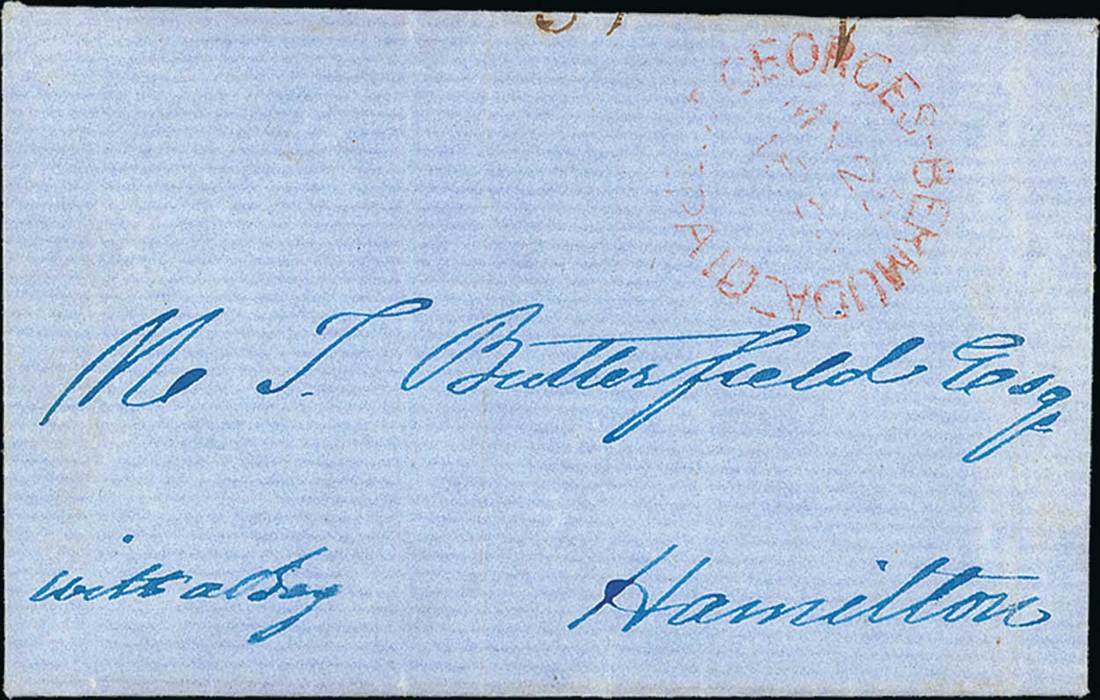 GEORGES-BERMUDA
PAID
MY 2
N. T. Butterfield Esq.
with a Bag
Hamilton